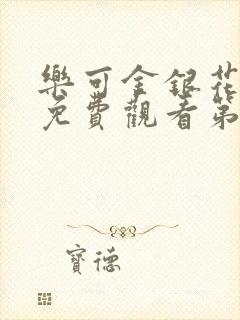 樂可金銀花
免費觀看第
寶德